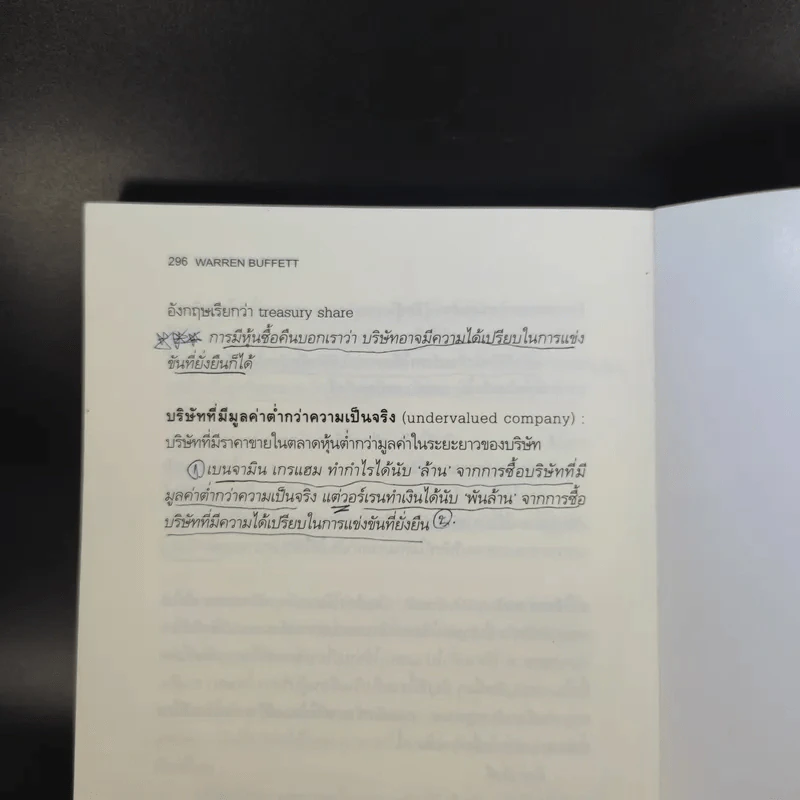 296 WARREN BUFFETT
อังกฤษเรียกว่า treasury share
การมีหุ้นซื้อคืนบอกเราว่า บริษัทอาจมีความได้เปรียบในการแข่ง
ขันที่ยั่งยืนก็ได้
บริษัทที่มีมูลค่าต่ำกว่าความเป็นจริง (undervalued company) :
บริษัทที่มีราคาขายในตลาดหุ้นต่ำกว่ามูลค่าในระยะยาวของบริษัท
① เบนจามิน เกรแฮม ทำกำไรได้นับ 'ล้าน' จากการซื้อบริษัทที่มี
มูลค่าต่ำกว่าความเป็นจริง แต่วอร์เรนทำเงินได้นับ 'พันล้าน' จากการซื้อ
บริษัทที่มีความได้เปรียบในการแข่งขันที่ยั่งยืน ②.